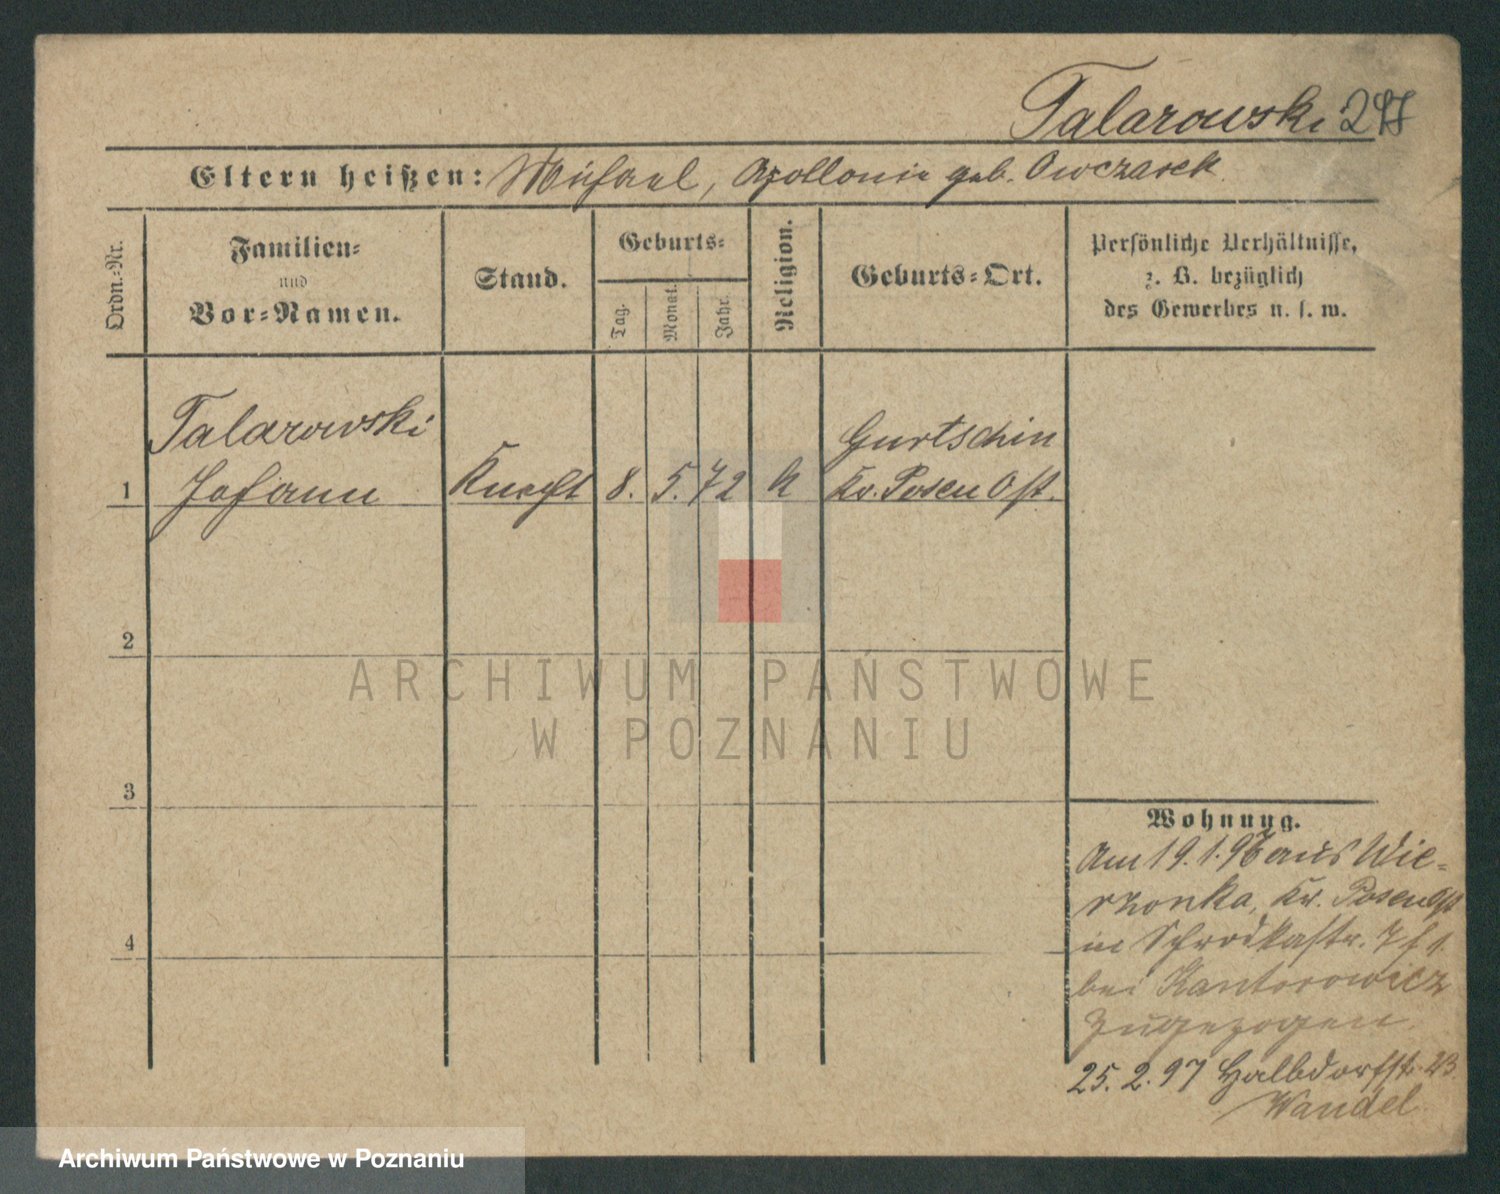 Talarowski 247
Eltern heißen: Michael, Apollonia geb. Owczarek
Ordn.-Nr.
Familien-
und
Vor-Namen.
Stand.
Geburts-
Tag.
Monat.
Jahr.
Religion.
Geburts-Ort.
Persönliche Verhältnisse,
z. B. bezüglich
des Gewerbes u. s. w.
Talarowski
1 Johann
Knecht
8. 5. 72
k
Gurtschin
Kr. Posen Ost.
2
3
4
Wohnung.
Am 19.1.96 aus Wie-
rzonka, Kr. Posen Ost
in Schrodkastr. 7 f 1.
bei Kantorowicz
zugezogen.
25. 2. 97 Halbdorfstr. 23
Wandel
ARCHIWUM PAŃSTWOWE
W POZNANIU
Archiwum Państwowe w Poznaniu